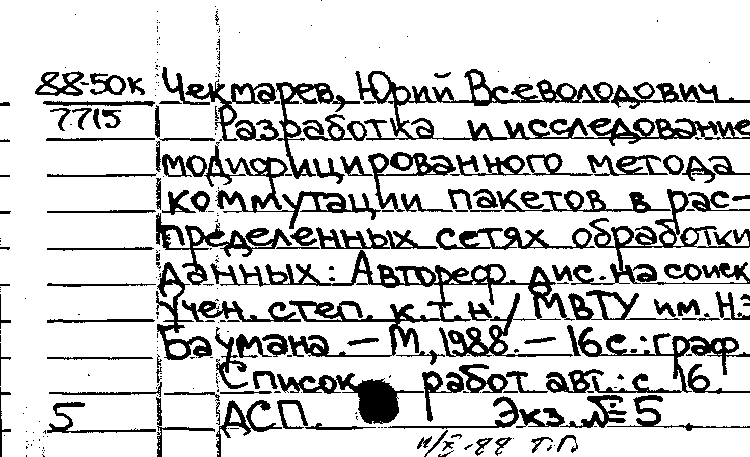 88-50к Чекмарев, Юрий Всеволодович.
7715 Разработка и исследование
модифицированного метода
коммутации пакетов в рас-
пределенных сетях обработки
данных: Автореф. дис. на соиск
учен. степ. к.т.н. / МВТУ им. Н.Э
Баумана. – М., 1988. – 16 с.: граф.
Список работ авт.: с. 16.
5 ДСП. Экз. № 5.